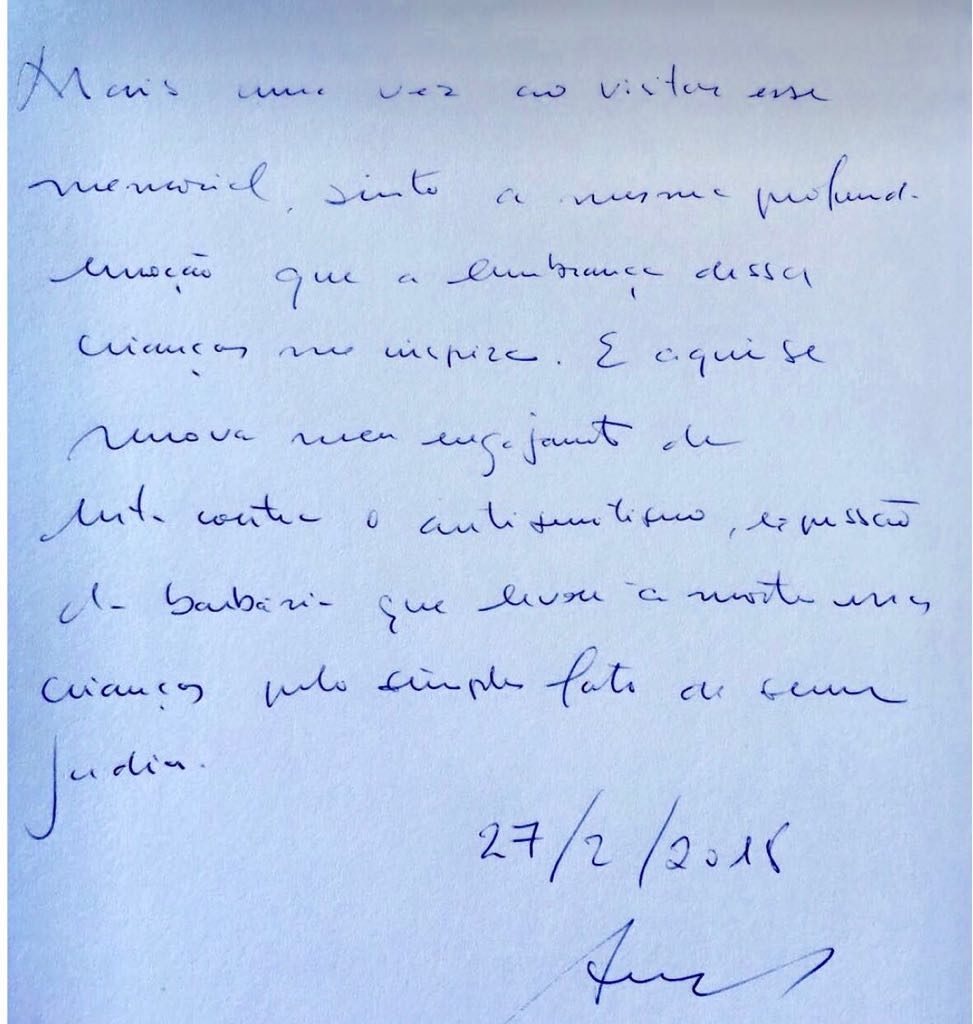 Mais uma vez ao visitar esse
memorial, sinto a mesma profunda
emoção que a lembrança dessas
crianças me inspira. E aqui se
renova meu engajamento de
luta contra o antisemitismo, expressão
da barbárie que levou à morte essas
crianças pelo simples fato de serem
judias.
27/2/2018